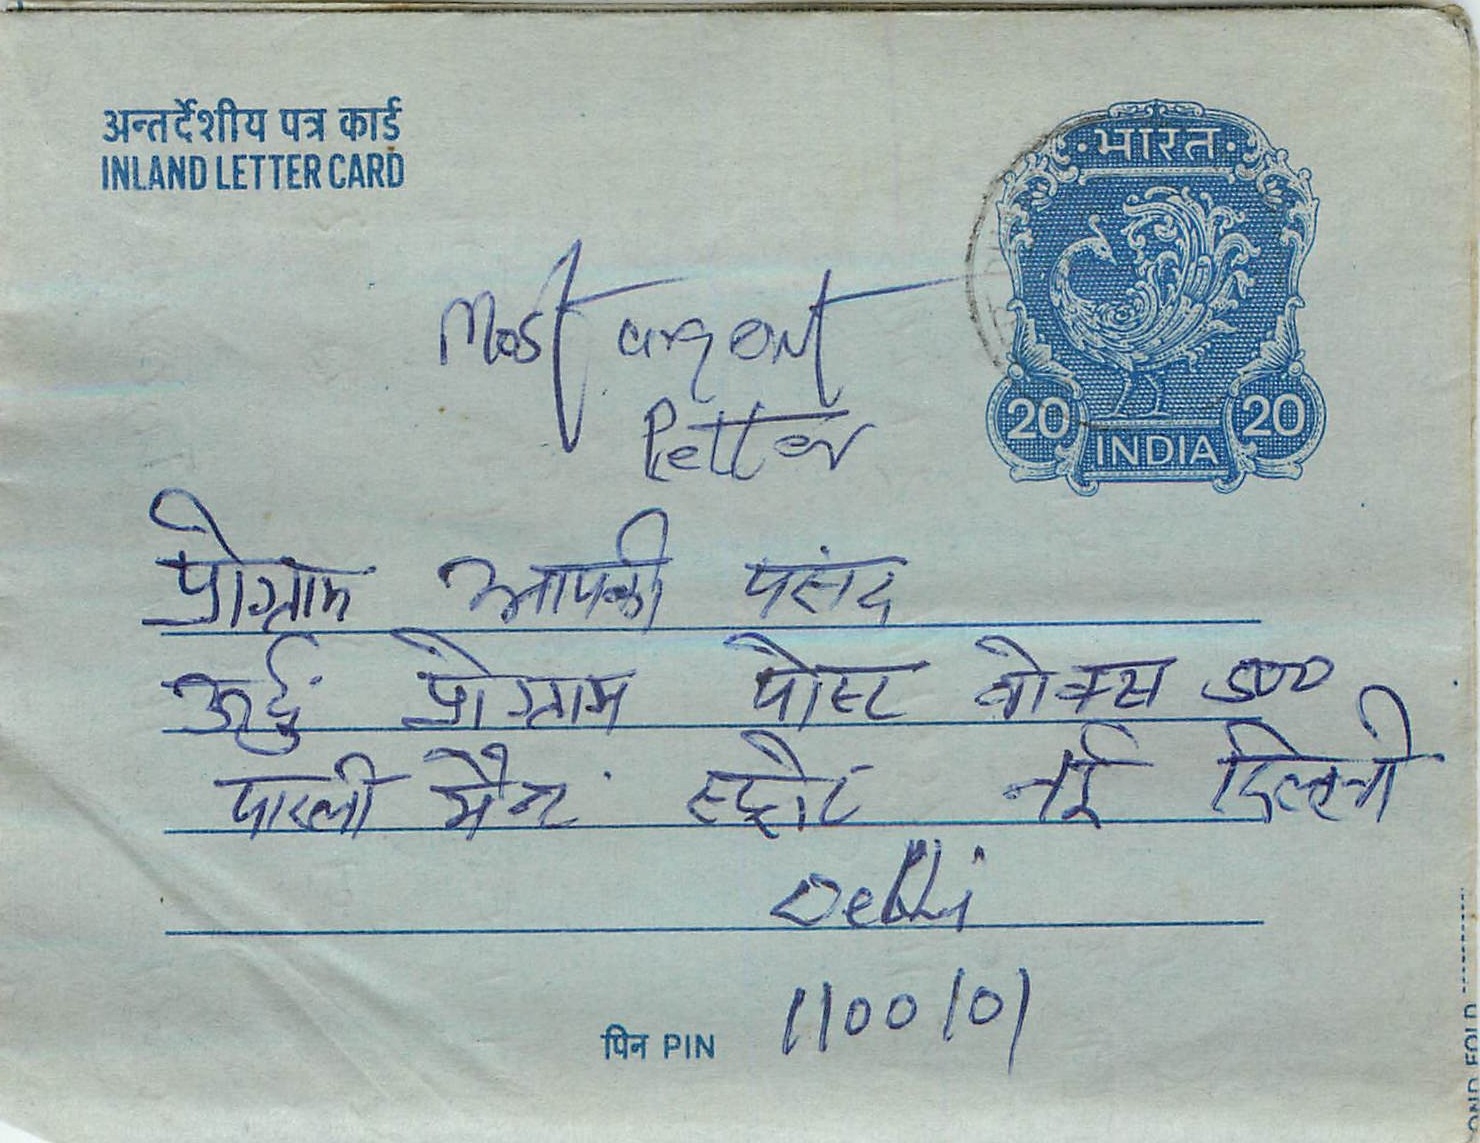 अन्तर्देशीय पत्र कार्ड
INLAND LETTER CARD
भारत
20 20
INDIA
Most urgent
Letter
प्रोग्राम आपकी पसंद
ऊर्दु प्रोग्राम पोस्ट बोक्स 500
पारली मैन्ट स्ट्रीट नई दिल्ली
Delhi
पिन PIN 1100101
OND FOLD